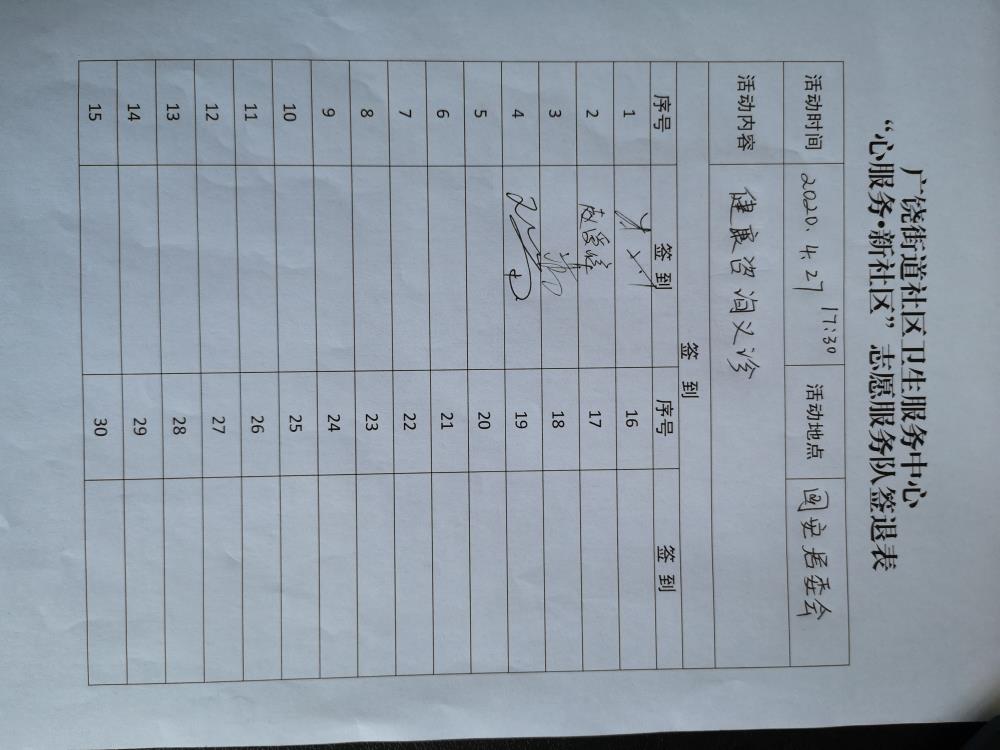 广饶街道社区卫生服务中心
“心服务•新社区”志愿服务队签退表
活动时间 2020.4.27 17:30 活动地点 国安居委会
活动内容 健康咨询义诊
签 到
序号 签 到 序号 签 到
1 16
2 17
3 18
4 19
5 20
6 21
7 22
8 23
9 24
10 25
11 26
12 27
13 28
14 29
15 30